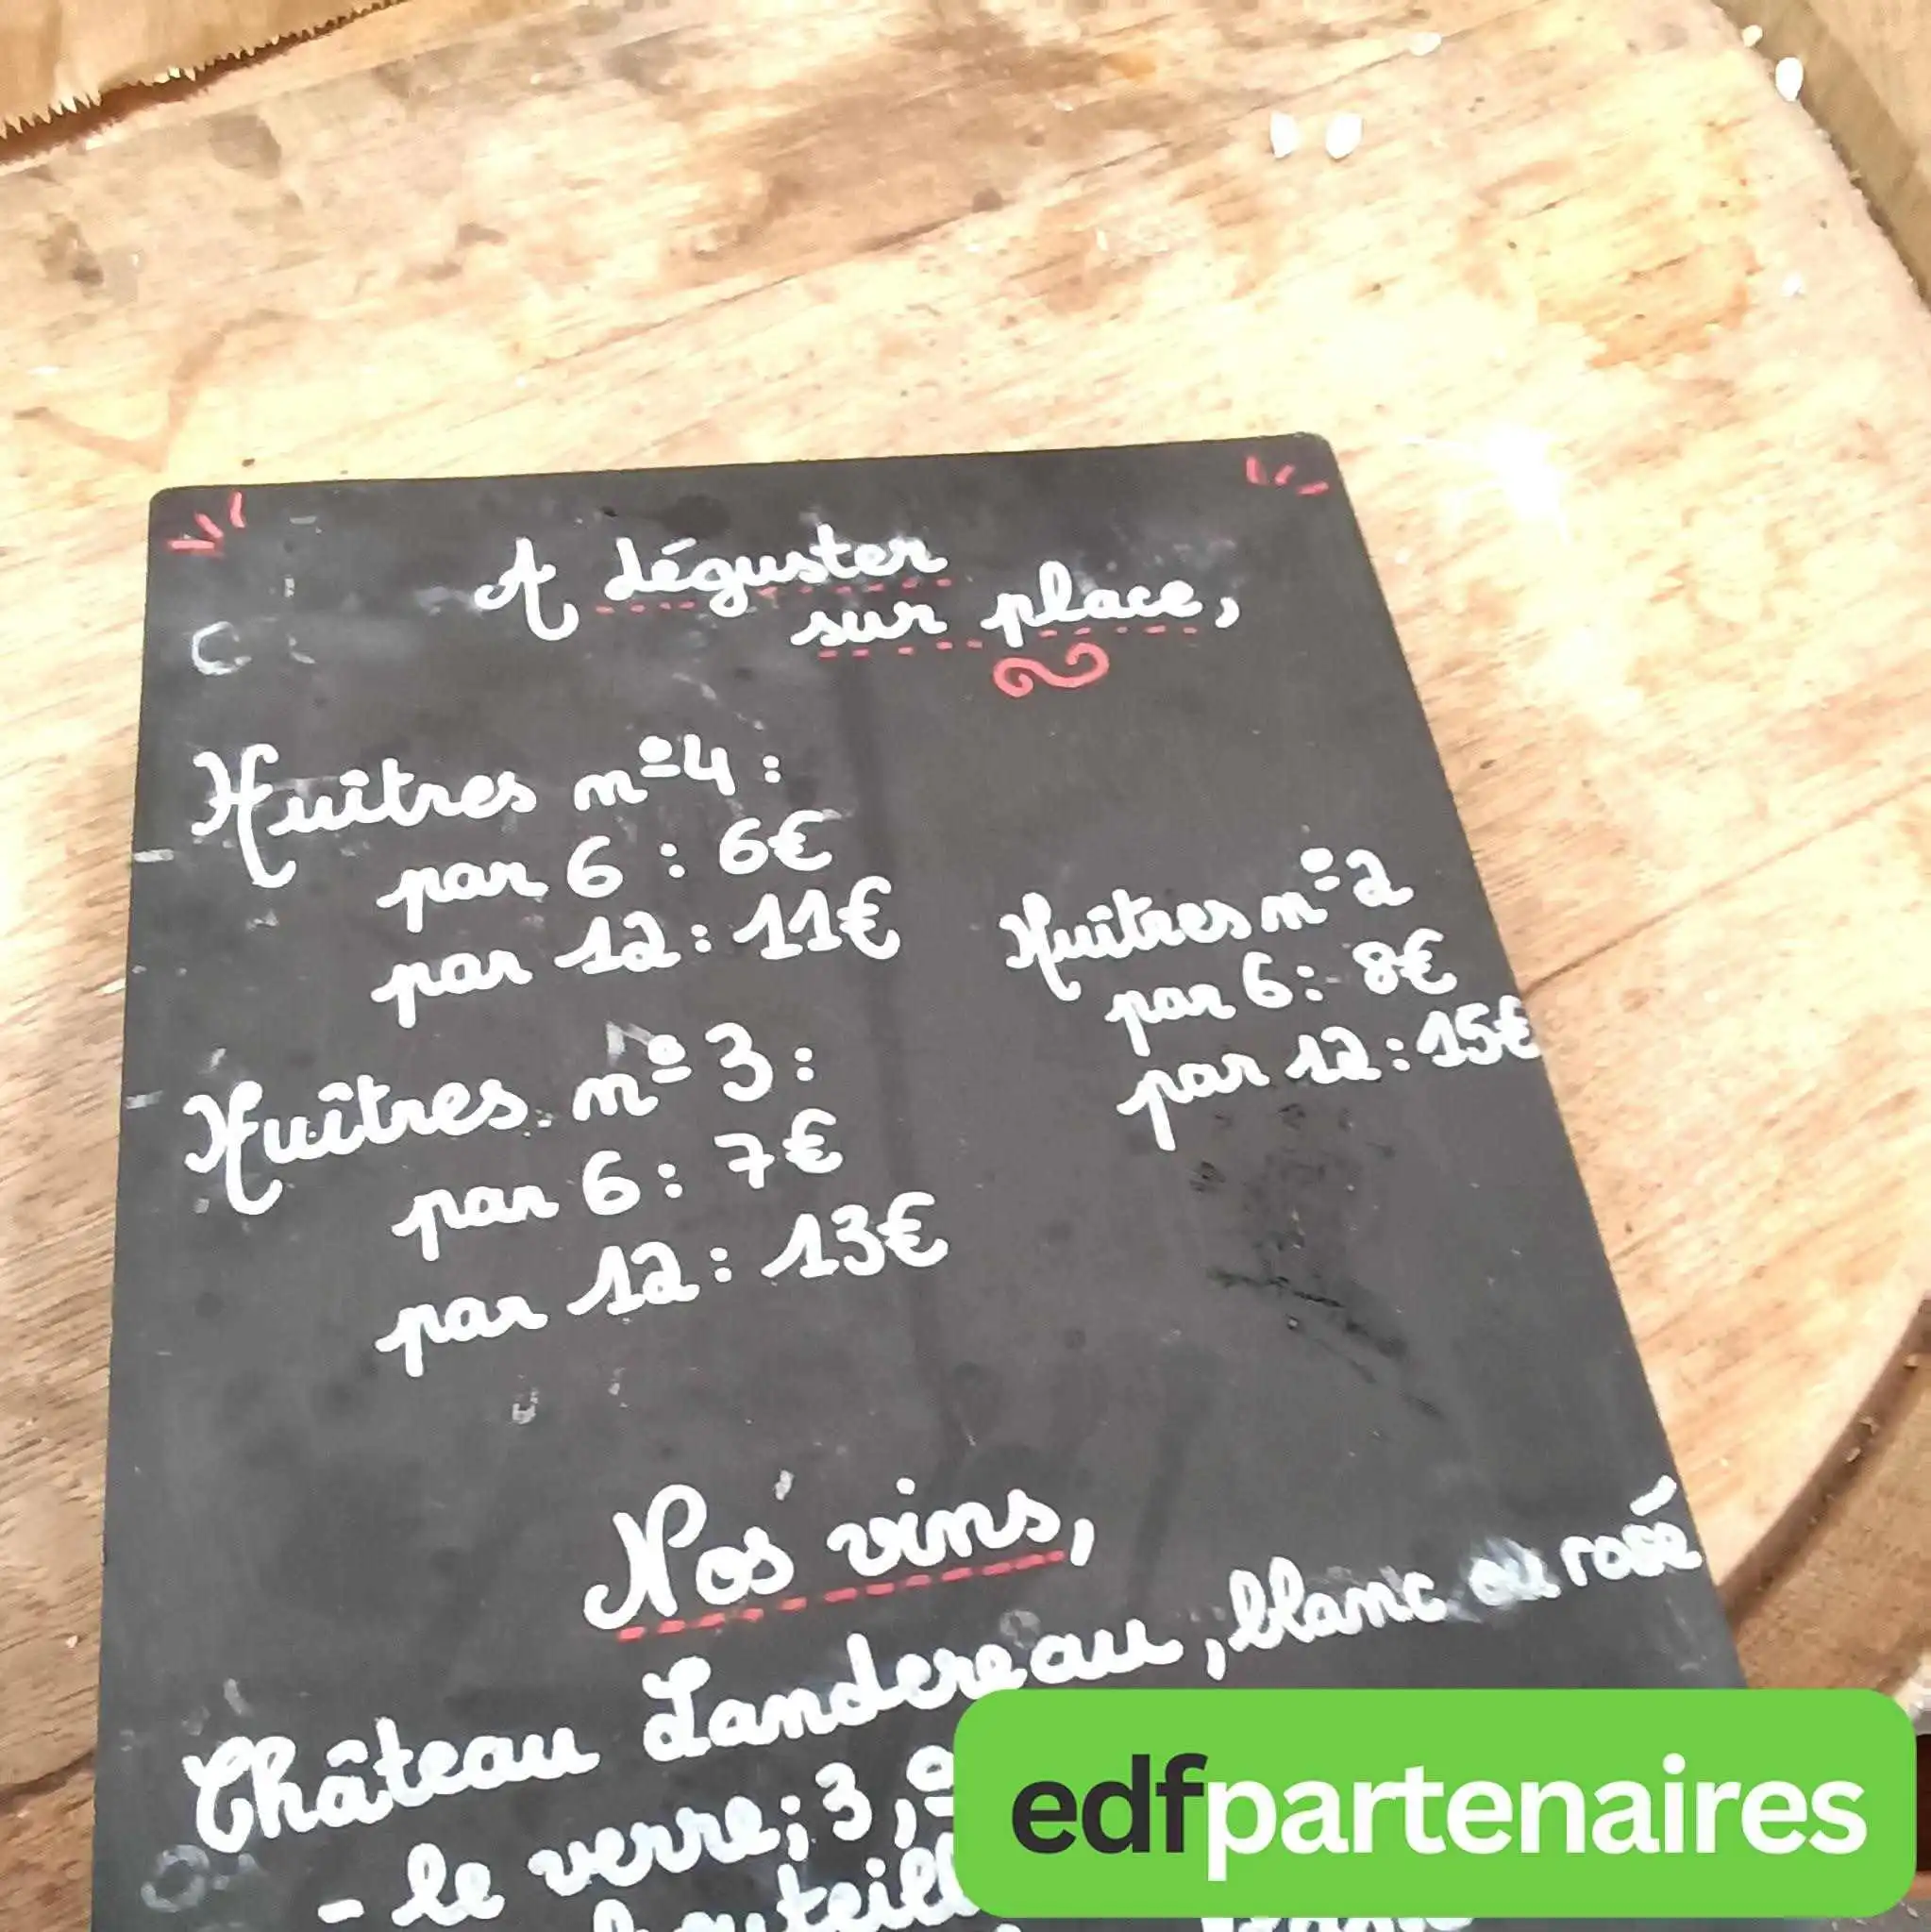 A déguster
sur place,
Huîtres nº4 :
par 6 : 6€
par 12 : 11€
Huîtres nº 3 :
par 6 : 7€
par 12 : 13€
Huîtres nº2
par 6 : 8€
par 12 : 15€
Nos vins,
Château Landereau, blanc ou rosé
- le verre; 3,
edfpartenaires